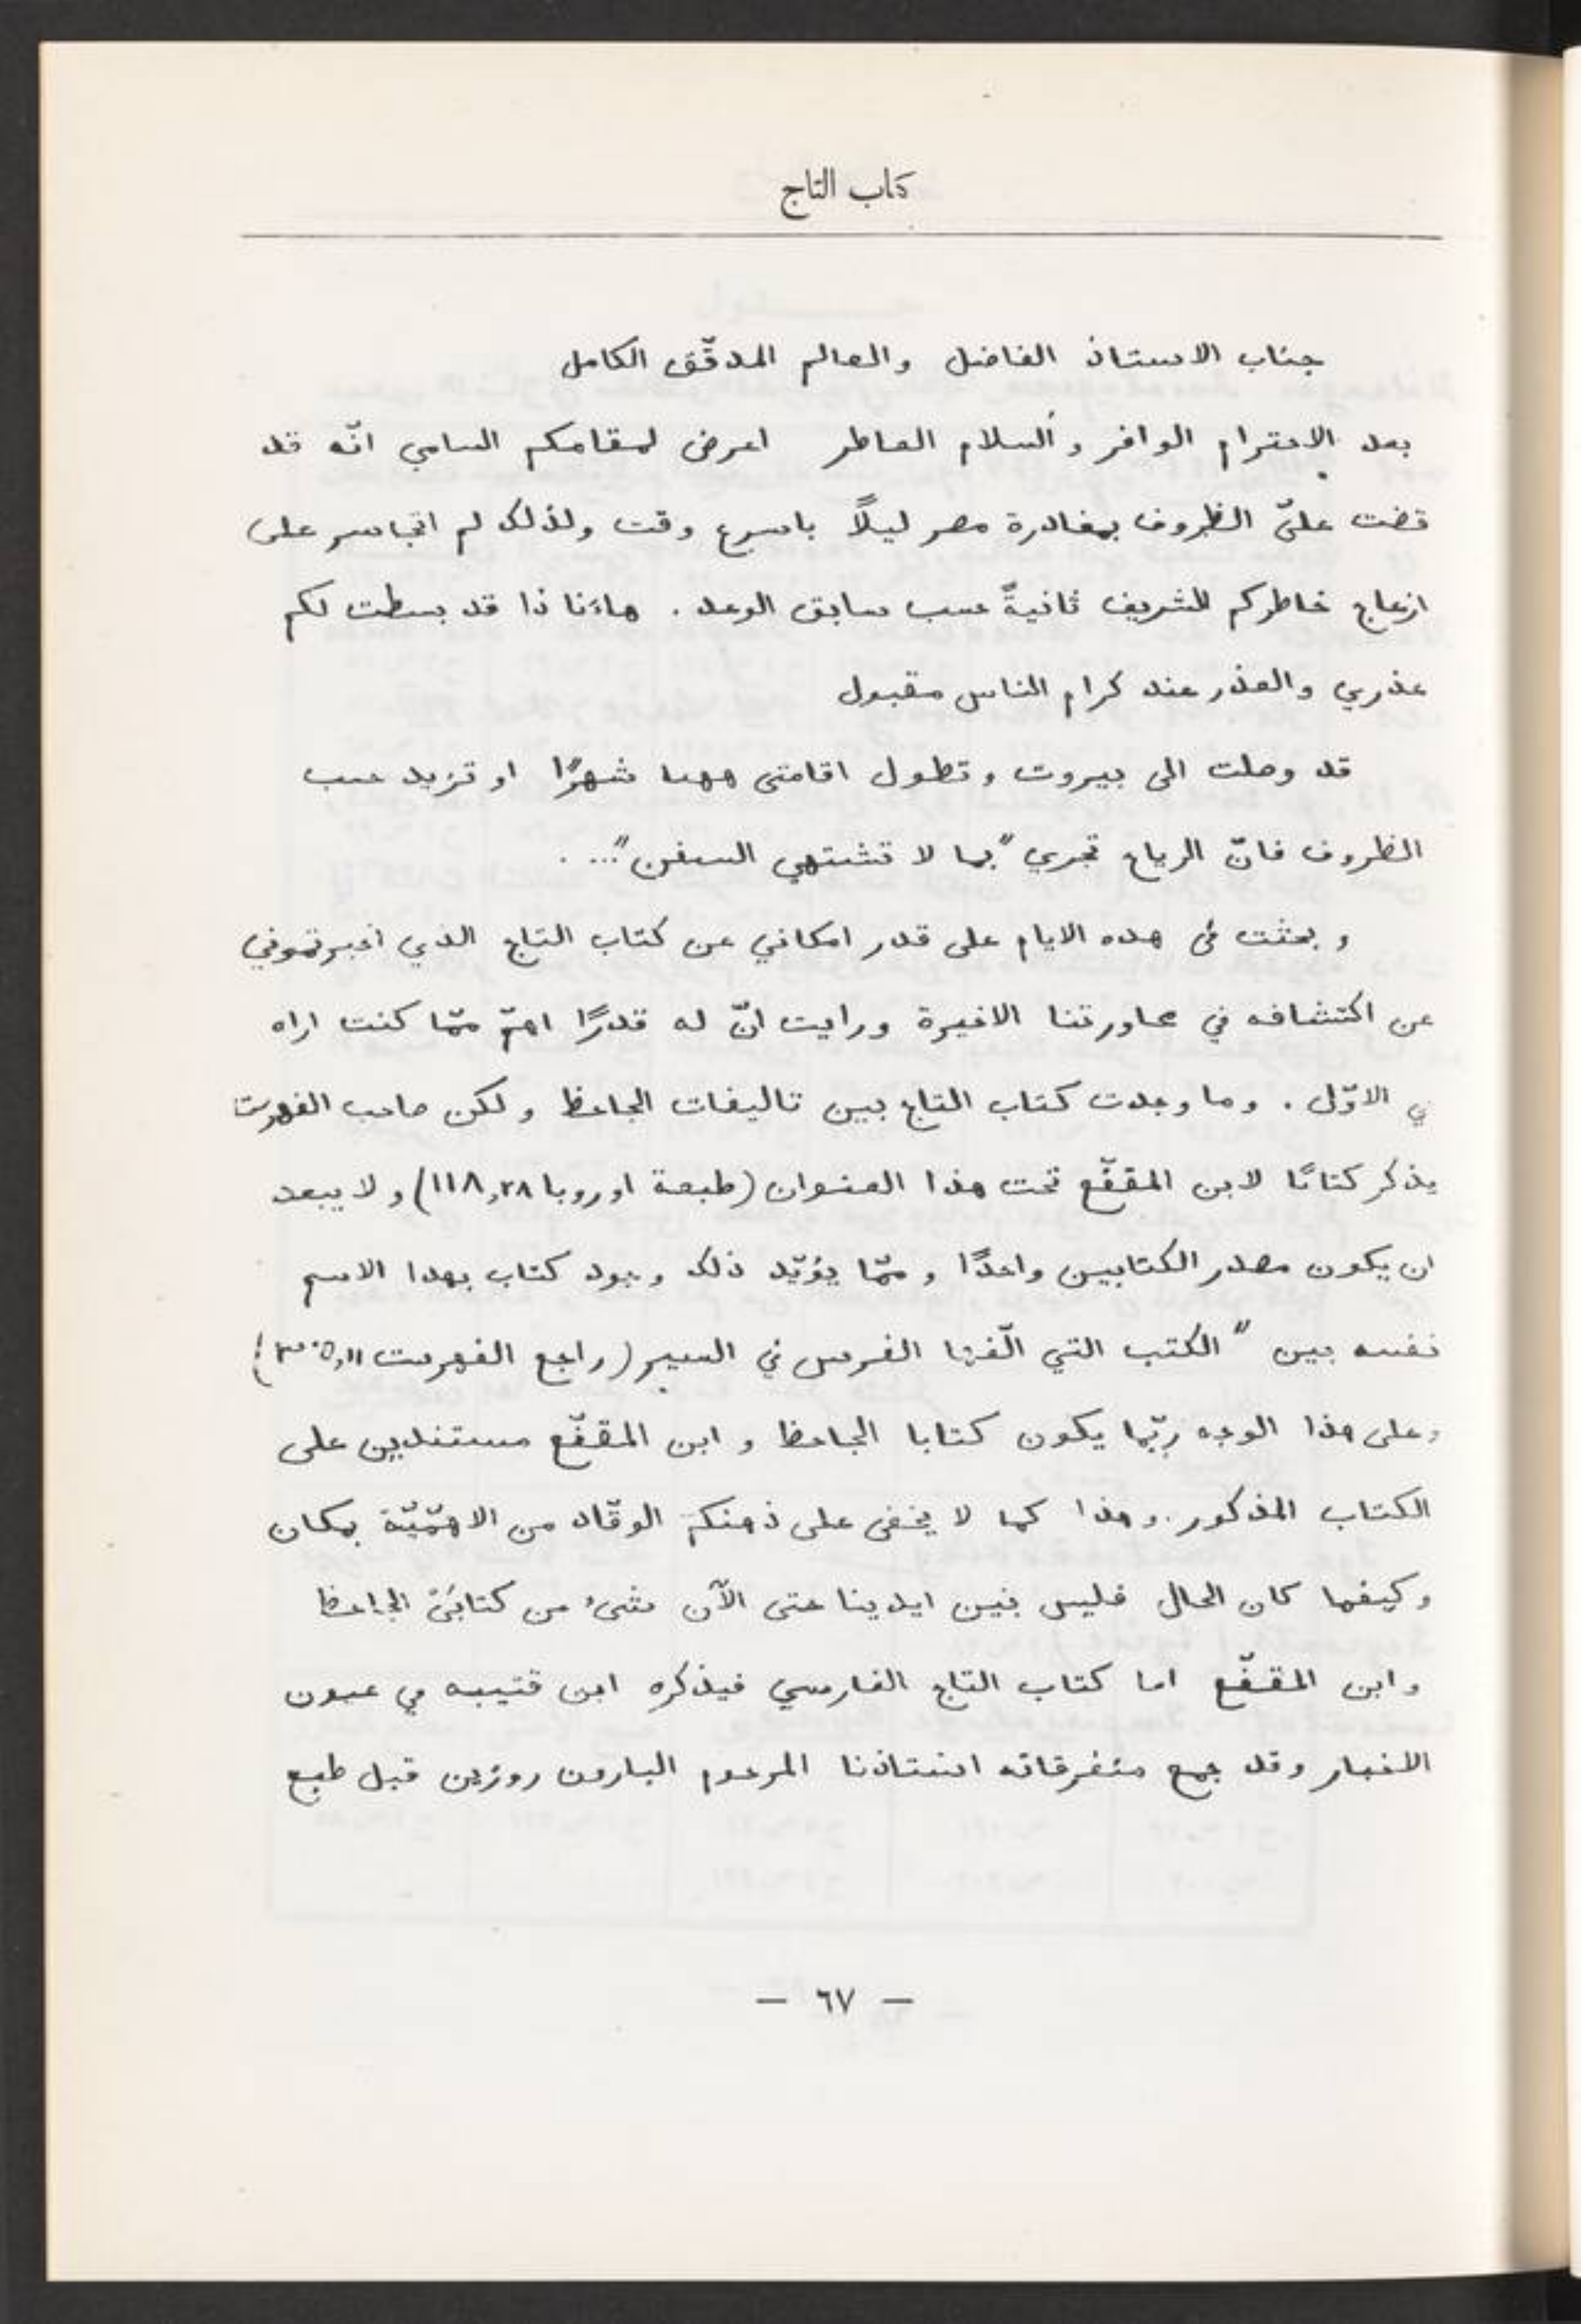 كتاب التاج
جناب الاستاذ الفاضل والعالم المدقّق الكامل
بعد الاحترام الوافر والسلام العاطر اعرض لمقامكم السامي انّه قد
قضت عليّ الظروف بمغادرة مصر ليلًا باسرع وقت ولذلك لم اتجاسر على
ازعاج خاطركم الشريف ثانيةً حسب سابق الوعد . هاءنا ذا قد بسطت لكم
عذري والعذر عند كرام الناس مقبول
قد وصلت الى بيروت وتطول اقامتى ههنا شهرًا او تزيد حسب
الظروف فانّ الرياح تجري "بما لا تشتهي السفن"... .
وبحثت فى هذه الايام على قدر امكاني عن كتاب التاج الذي اخبرتموني
عن اكتشافه في محاورتنا الاخيرة ورايت انّ له قدرًا اهمّ ممّا كنت اراه
في الاوّل . وما وجدت كتاب التاج بين تاليفات الجاحظ ولكن صاحب الفهرست
يذكر كتابًا لابن المقفّع تحت هذا العنوان (طبعة اوروبا ١١٨,٢٨) ولا يبعد
ان يكون مصدر الكتابين واحدًا وممّا يؤيّد ذلك وجود كتاب بهذا الاسم
نفسه بين "الكتب التي الّفها الفرس في السير (راجع الفهرست ٣٠٥,١١)
وعلى هذا الوجه ربّما يكون كتابا الجاحظ وابن المقفّع مستندين على
الكتاب المذكور. وهذا كما لا يخفى على ذهنكم الوقّاد من الاهمّيّة بمكان
وكيفما كان الحال فليس بين ايدينا حتى الآن شىء من كتابَىْ الجاحظ
وابن المقفّع اما كتاب التاج الفارسي فيذكره ابن قتيبه في عيون
الاخبار وقد جمع متفرقاته استاذنا المرحوم البارون روزين قبل طبع
— ٦٧ —